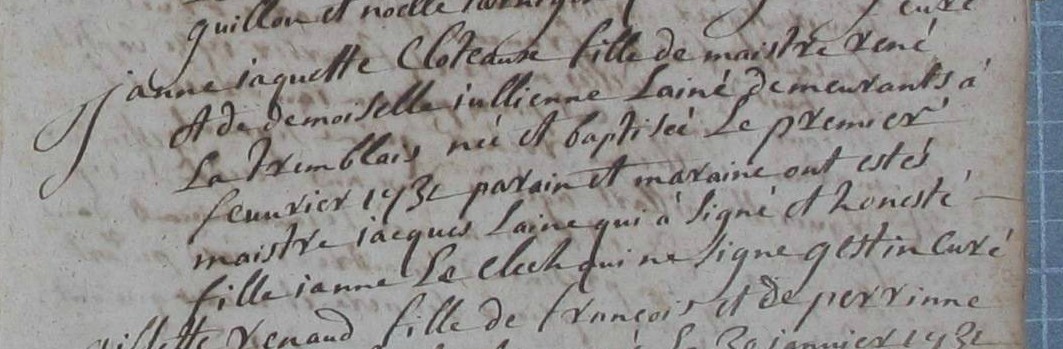 guillou et noelle
janne iaquette Cloteaux fille de maistre rené
et de demoiselle iullienne Lainé demeurants à
La tremblais née et baptiseé Le premier
feuurier 1732 parain et maraine ont estés
maistre iacques Laine qui à signé et honeste
fille ianne Le Clech qui ne signe gestin Curé
renaud fille de francois et de perrinne
Le 30 januier 1732